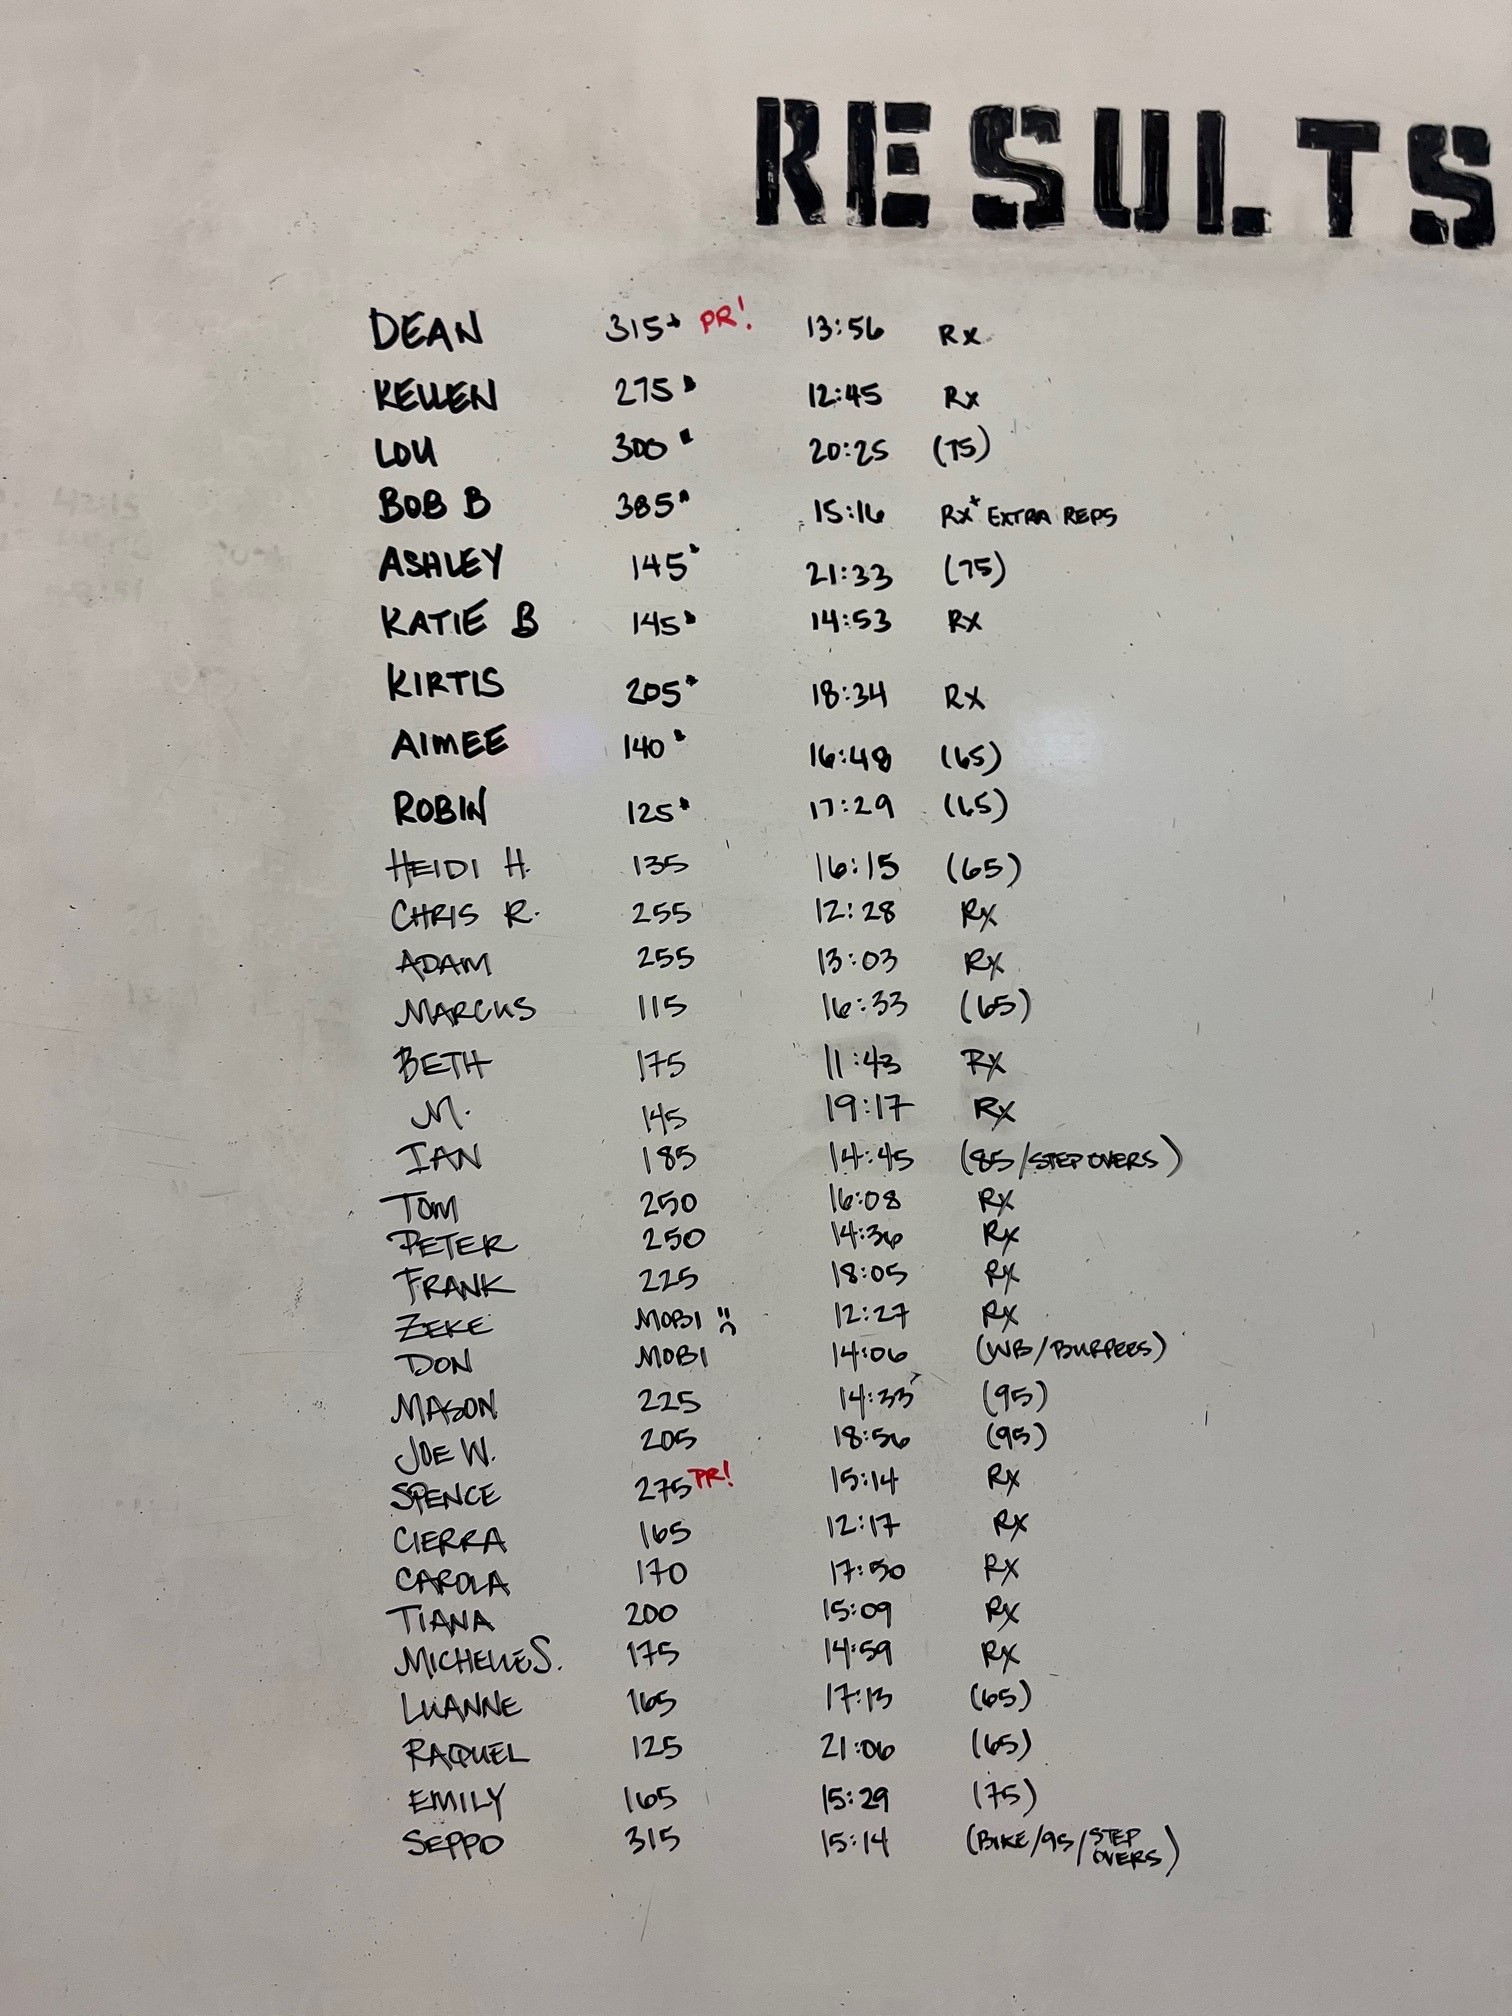 RESULTS
DEAN 315* PR! 13:56 Rx
KELLEN 275* 12:45 Rx
LOU 300* 20:25 (75)
BOB B 385* 15:16 Rx* EXTRA REPS
ASHLEY 145* 21:33 (75)
KATIE B 145* 14:53 Rx
KIRTIS 205* 18:34 Rx
AIMEE 140* 16:48 (65)
ROBIN 125* 17:29 (65)
HEIDI H. 135 16:15 (65)
CHRIS R. 255 12:28 Rx
ADAM 255 13:03 Rx
MARCUS 115 16:33 (65)
BETH 175 11:43 Rx
M. 145 19:17 Rx
IAN 185 14:45 (85/STEP OVERS)
TOM 250 16:08 Rx
PETER 250 14:36 Rx
FRANK 225 18:05 Rx
ZEKE MOBI :( 12:27 Rx
DON MOBI 14:06 (WB/BURPEES)
MASON 225 14:33 (95)
JOE W. 205 18:56 (95)
SPENCE 275 PR! 15:14 Rx
CIERRA 165 12:17 Rx
CAROLA 170 17:50 Rx
TIANA 200 15:09 Rx
MICHELLE S. 175 14:59 Rx
LUANNE 165 17:13 (65)
RAQUEL 125 21:06 (65)
EMILY 165 15:29 (75)
SEPPO 315 15:14 (BIKE/95/STEP OVERS)